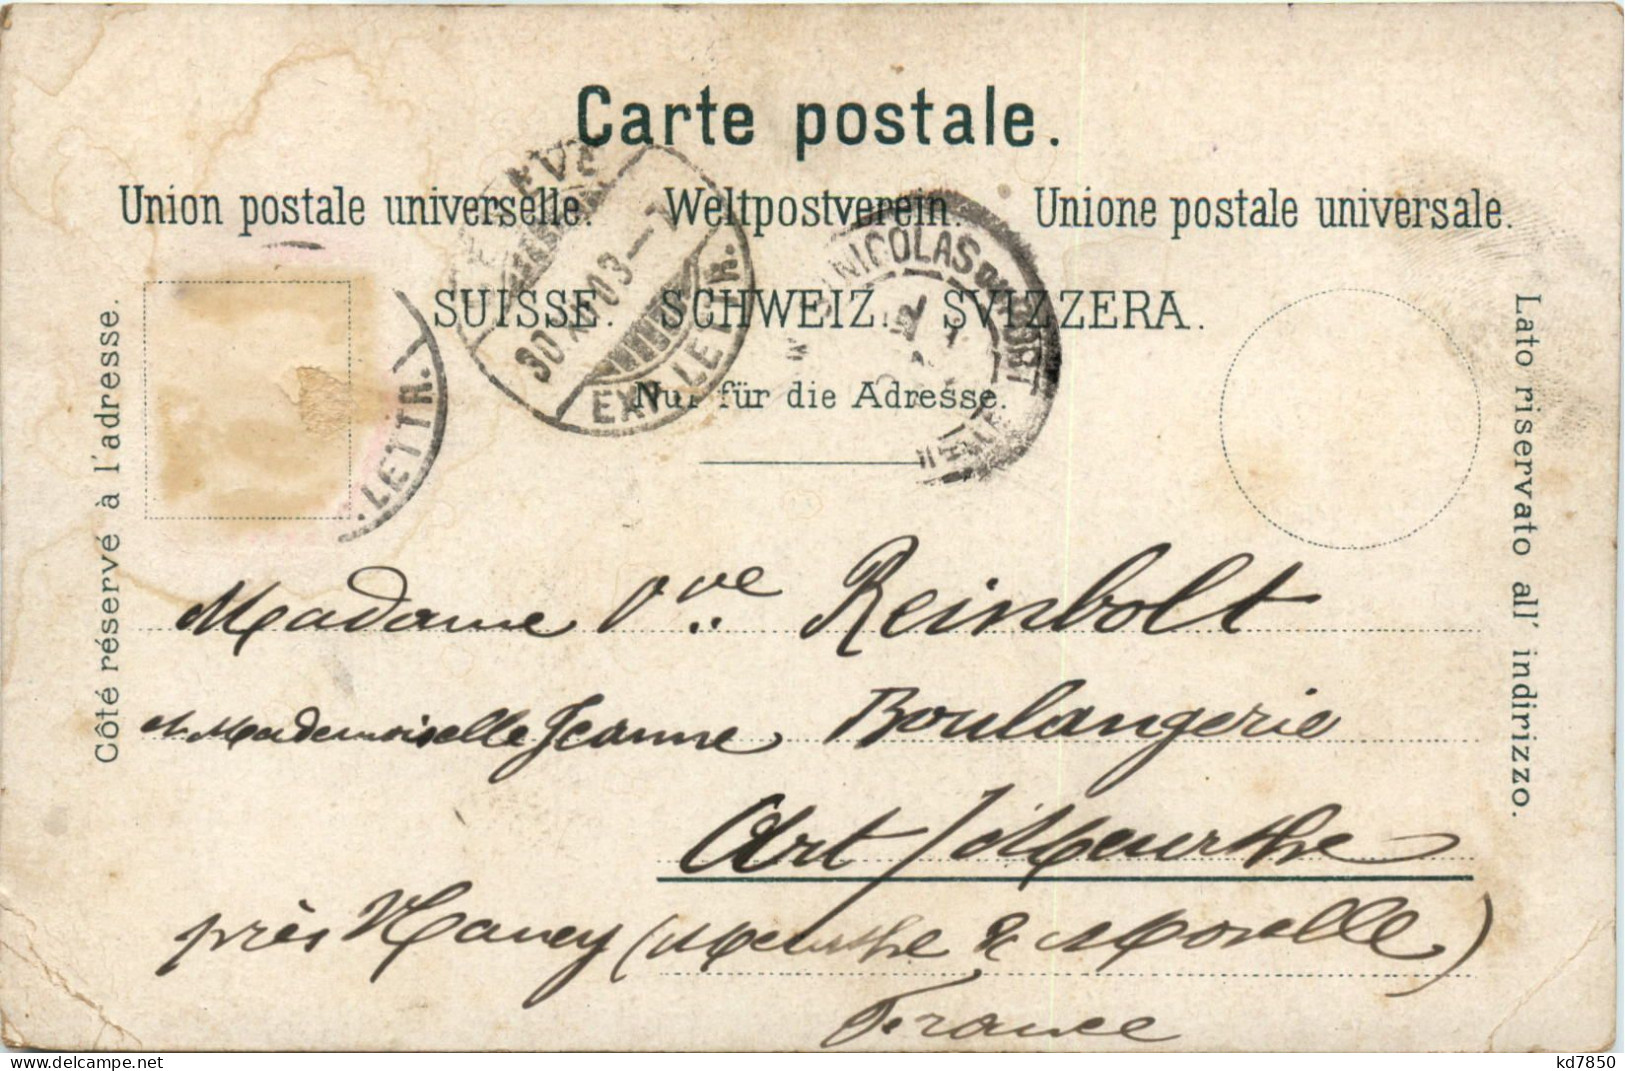 Carte postale.
Union postale universelle. Weltpostverein. Unione postale universale.
SUISSE. SCHWEIZ. SVIZZERA.
Nur für die Adresse.
Côté réservé à l'adresse.
Lato riservato all' indirizzo.
GENÈVE
30 XII 03
EXP. LETTR.
LETTR.
NICOLAS DU PORT
Madame Vve Reinbolt
et Mademoiselle Jeanne Boulangerie
Art / Meurthe
près Nancy (Meurthe & Moselle)
France
www.delcampe.net
kd7850